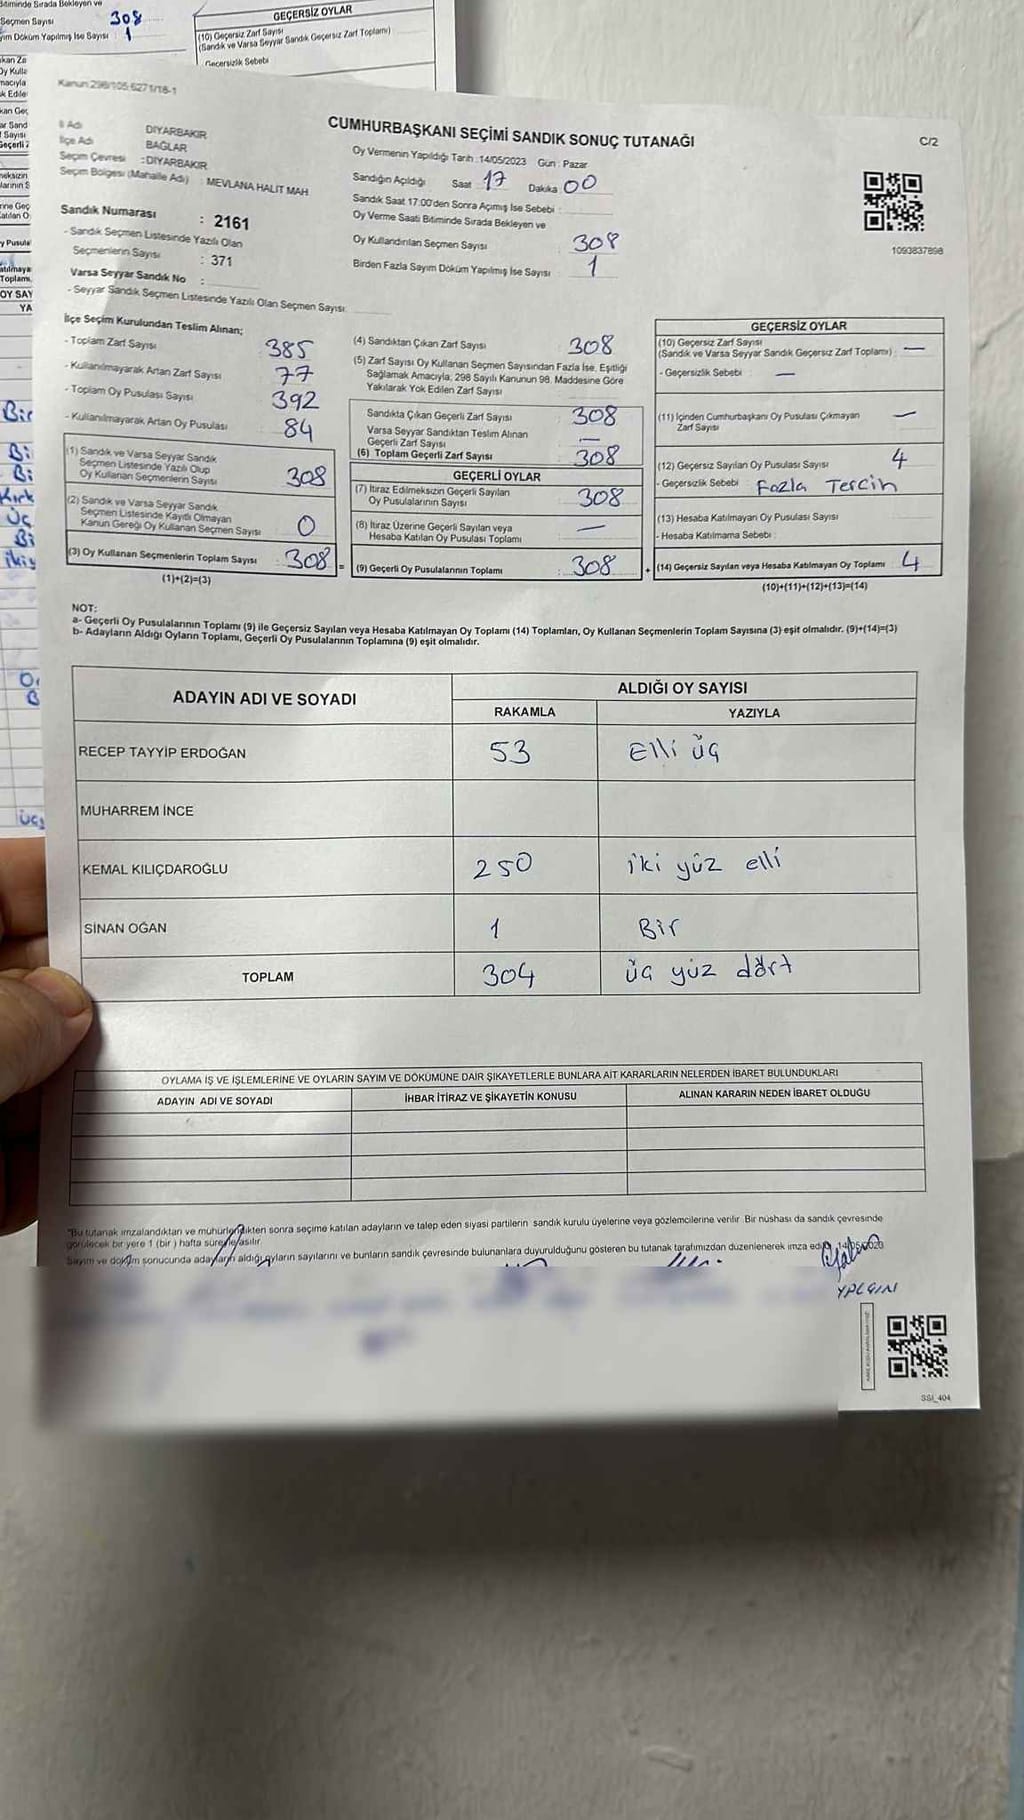 Seçmen Sayısı 308
yım Döküm Yapılmış İse Sayısı : 1
GEÇERSİZ OYLAR
(10) Geçersiz Zarf Sayısı
(Sandık ve Varsa Seyyar Sandık Geçersiz Zarf Toplamı)
Geçersizlik Sebebi
Kanun:298/105;6271/18-1
CUMHURBAŞKANI SEÇİMİ SANDIK SONUÇ TUTANAĞI
C/2
İl Adı DİYARBAKIR
İlçe Adı BAĞLAR
Seçim Çevresi : DİYARBAKIR
Seçim Bölgesi (Mahalle Adı) : MEVLANA HALİT MAH
Sandık Numarası : 2161
- Sandık Seçmen Listesinde Yazılı Olan
Seçmenlerin Sayısı : 371
Varsa Seyyar Sandık No :
- Seyyar Sandık Seçmen Listesinde Yazılı Olan Seçmen Sayısı:
Oy Vermenin Yapıldığı Tarih : 14/05/2023 Gün : Pazar
Sandığın Açıldığı Saat 17 Dakika 00
Sandık Saat 17:00'den Sonra Açılmış İse Sebebi :
Oy Verme Saati Bitiminde Sırada Bekleyen ve
Oy Kullandırılan Seçmen Sayısı 308
Birden Fazla Sayım Döküm Yapılmış İse Sayısı 1
1093837898
İlçe Seçim Kurulundan Teslim Alınan;
- Toplam Zarf Sayısı 385
- Kullanılmayarak Artan Zarf Sayısı 77
- Toplam Oy Pusulası Sayısı 392
- Kullanılmayarak Artan Oy Pusulası 84
(1) Sandık ve Varsa Seyyar Sandık
Seçmen Listesinde Yazılı Olup
Oy Kullanan Seçmenlerin Sayısı 308
(2) Sandık ve Varsa Seyyar Sandık
Seçmen Listesinde Kayıtlı Olmayan
Kanun Gereği Oy Kullanan Seçmen Sayısı 0
(3) Oy Kullanan Seçmenlerin Toplam Sayısı 308 =
(1)+(2)=(3)
(4) Sandıktan Çıkan Zarf Sayısı 308
(5) Zarf Sayısı Oy Kullanan Seçmen Sayısından Fazla İse, Eşitliği
Sağlamak Amacıyla, 298 Sayılı Kanunun 98. Maddesine Göre
Yakılarak Yok Edilen Zarf Sayısı
Sandıkta Çıkan Geçerli Zarf Sayısı 308
Varsa Seyyar Sandıktan Teslim Alınan
Geçerli Zarf Sayısı —
(6) Toplam Geçerli Zarf Sayısı 308
GEÇERLİ OYLAR
(7) İtiraz Edilmeksizin Geçerli Sayılan
Oy Pusulalarının Sayısı 308
(8) İtiraz Üzerine Geçerli Sayılan veya
Hesaba Katılan Oy Pusulası Toplamı —
(9) Geçerli Oy Pusulalarının Toplamı : 308 +
GEÇERSİZ OYLAR
(10) Geçersiz Zarf Sayısı
(Sandık ve Varsa Seyyar Sandık Geçersiz Zarf Toplamı) : —
- Geçersizlik Sebebi : —
(11) İçinden Cumhurbaşkanı Oy Pusulası Çıkmayan
Zarf Sayısı —
(12) Geçersiz Sayılan Oy Pusulası Sayısı 4
- Geçersizlik Sebebi Fazla Tercih
(13) Hesaba Katılmayan Oy Pusulası Sayısı
- Hesaba Katılmama Sebebi
(14) Geçersiz Sayılan veya Hesaba Katılmayan Oy Toplamı : 4
(10)+(11)+(12)+(13)=(14)
NOT:
a- Geçerli Oy Pusulalarının Toplamı (9) ile Geçersiz Sayılan veya Hesaba Katılmayan Oy Toplamı (14) Toplamları, Oy Kullanan Seçmenlerin Toplam Sayısına (3) eşit olmalıdır. (9)+(14)=(3)
b- Adayların Aldığı Oyların Toplamı, Geçerli Oy Pusulalarının Toplamına (9) eşit olmalıdır.
ADAYIN ADI VE SOYADI ALDIĞI OY SAYISI
RAKAMLA YAZIYLA
RECEP TAYYİP ERDOĞAN 53 Elli üç
MUHARREM İNCE
KEMAL KILIÇDAROĞLU 250 iki yüz elli
SİNAN OĞAN 1 Bir
TOPLAM 304 üç yüz dört
OYLAMA İŞ VE İŞLEMLERİNE VE OYLARIN SAYIM VE DÖKÜMÜNE DAİR ŞİKAYETLERLE BUNLARA AİT KARARLARIN NELERDEN İBARET BULUNDUKLARI
ADAYIN ADI VE SOYADI İHBAR İTİRAZ VE ŞİKAYETİN KONUSU ALINAN KARARIN NEDEN İBARET OLDUĞU
"Bu tutanak imzalandıktan ve mühürlendikten sonra seçime katılan adayların ve talep eden siyasi partilerin sandık kurulu üyelerine veya gözlemcilerine verilir. Bir nüshası da sandık çevresinde
görülecek bir yere 1 (bir) hafta süreyle asılır.
Sayım ve döküm sonucunda adayların aldığı oyların sayılarını ve bunların sandık çevresinde bulunanlara duyurulduğunu gösteren bu tutanak tarafımızdan düzenlenerek imza
SSI_404